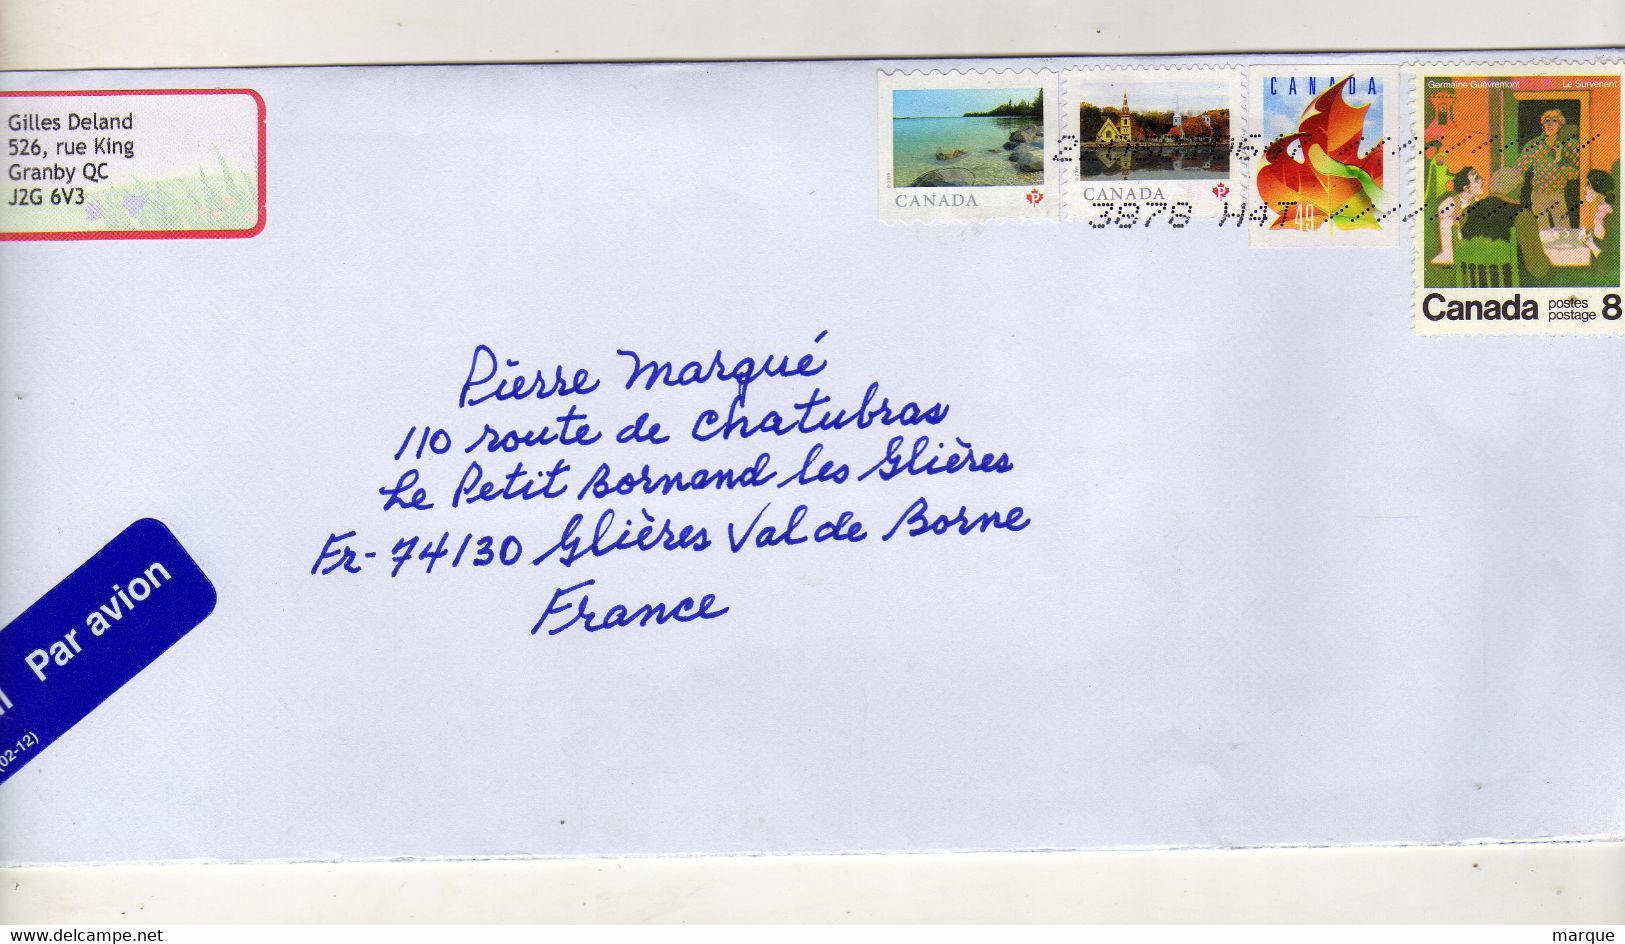 Gilles Deland
526, rue King
Granby QC
J2G 6V3
CANADA P
CANADA P
CANADA
49
Germaine Guèvremont Le Survenant
Canada postes postage 8
3878 H4T
Pierre Marqué
110 route de Chatubras
Le Petit Bornand les Glières
Fr-74130 Glières Val de Borne
France
Par avion
(02-12)
www.delcampe.net
marque